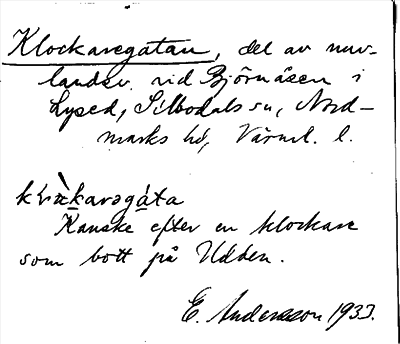 Klockaregatan, del av nuv.
landsv. vid Björnåsen i
Lysed, Silbodals sn, Nord-
marks hd, Värml. l.
Kanske efter en klockare
som bott på Udden.
E. Andersson 1933.